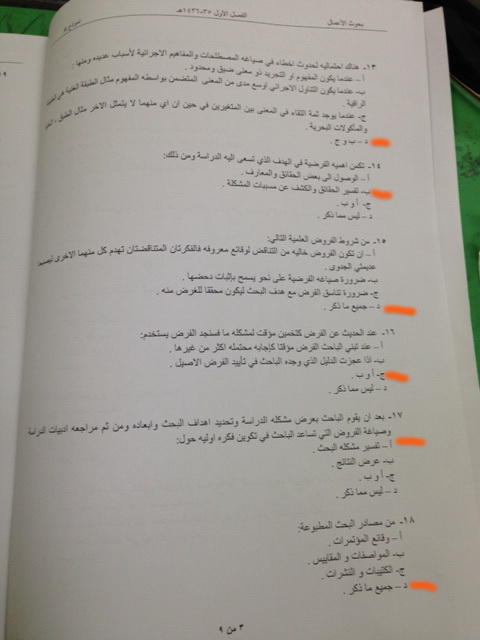 بحوث الأعمال
الفصل الأول ٣٥-١٤٣٦هـ
نموذج
١٣- هناك احتماليه لحدوث اخطاء في صياغه المصطلحات والمفاهيم الاجرائية لأسباب عديده ومنها :
أ – عندما يكون المفهوم او التجريد ذو معنى ضيق ومحدود .
ب- عندما يكون التناول الاجرائي اوسع مدى من المعنى المتضمن بواسطه المفهوم مثال الطبقة الغنية في
الراقية .
ج- عندما يوجد ثمة التقاء في المعنى بين المتغيرين في حين ان اي منهما لا يتمثل الاخر مثال الطبق ،
والمأكولات البحرية .
د – ب و ج .
١٤- تكمن اهميه الفرضية في الهدف الذي تسعى اليه الدراسة ومن ذلك:
أ – الوصول الى بعض الحقائق والمعارف .
ب- تفسير الحقائق والكشف عن مسببات المشكلة .
ج- أ و ب .
د – ليس مما ذكر .
١٥- من شروط الفروض العلمية التالي:
أ – ان تكون الفروض خاليه من التناقض لوقائع معروفه فالفكرتان المتناقضتان تهدم كل منهما الاخرى ليصبحا
عديمتي الجدوى .
ب- ضرورة صياغه الفرضية على نحو يسمح بإثبات دحضها .
ج- ضرورة تناسق الفرض مع هدف البحث ليكون محققا للغرض منه .
د – جميع ما ذكر .
١٦- عند الحديث عن الفرض كتخمين مؤقت لمشكله ما فسنجد الفرض يستخدم:
أ – عند تبني الباحث الفرض مؤقتا كإجابه محتمله اكثر من غيرها .
ب- اذا عجزت الدليل الذي وجده الباحث في تأييد الفرض الاصيل .
ج- أ و ب .
د – ليس مما ذكر .
١٧- بعد ان يقوم الباحث بعرض مشكله الدراسة وتحديد اهداف البحث وابعاده ومن ثم مراجعه ادبيات الدراسة
وصياغة الفروض التي تساعد الباحث في تكوين فكره اوليه حول:
أ – تفسير مشكله البحث .
ب- عرض النتائج .
ج- أ و ب .
د – ليس مما ذكر .
١٨- من مصادر البحث المطبوعة:
أ – وقائع المؤتمرات .
ب- المواصفات و المقاييس .
ج- الكتيبات و النشرات .
د – جميع ما ذكر .
٣ من ٩
١٩